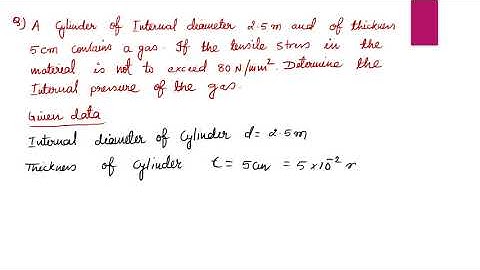 Q) A Cylinder of Internal diameter 2.5 m and of thickness
5 cm contains a gas. If the tensile stress in the
material is not to exceed 80 N/mm². Determine the
Internal pressure of the gas.
Given data
Internal diameter of Cylinder d = 2.5 m
Thickness of cylinder t = 5 cm = 5 × 10⁻²